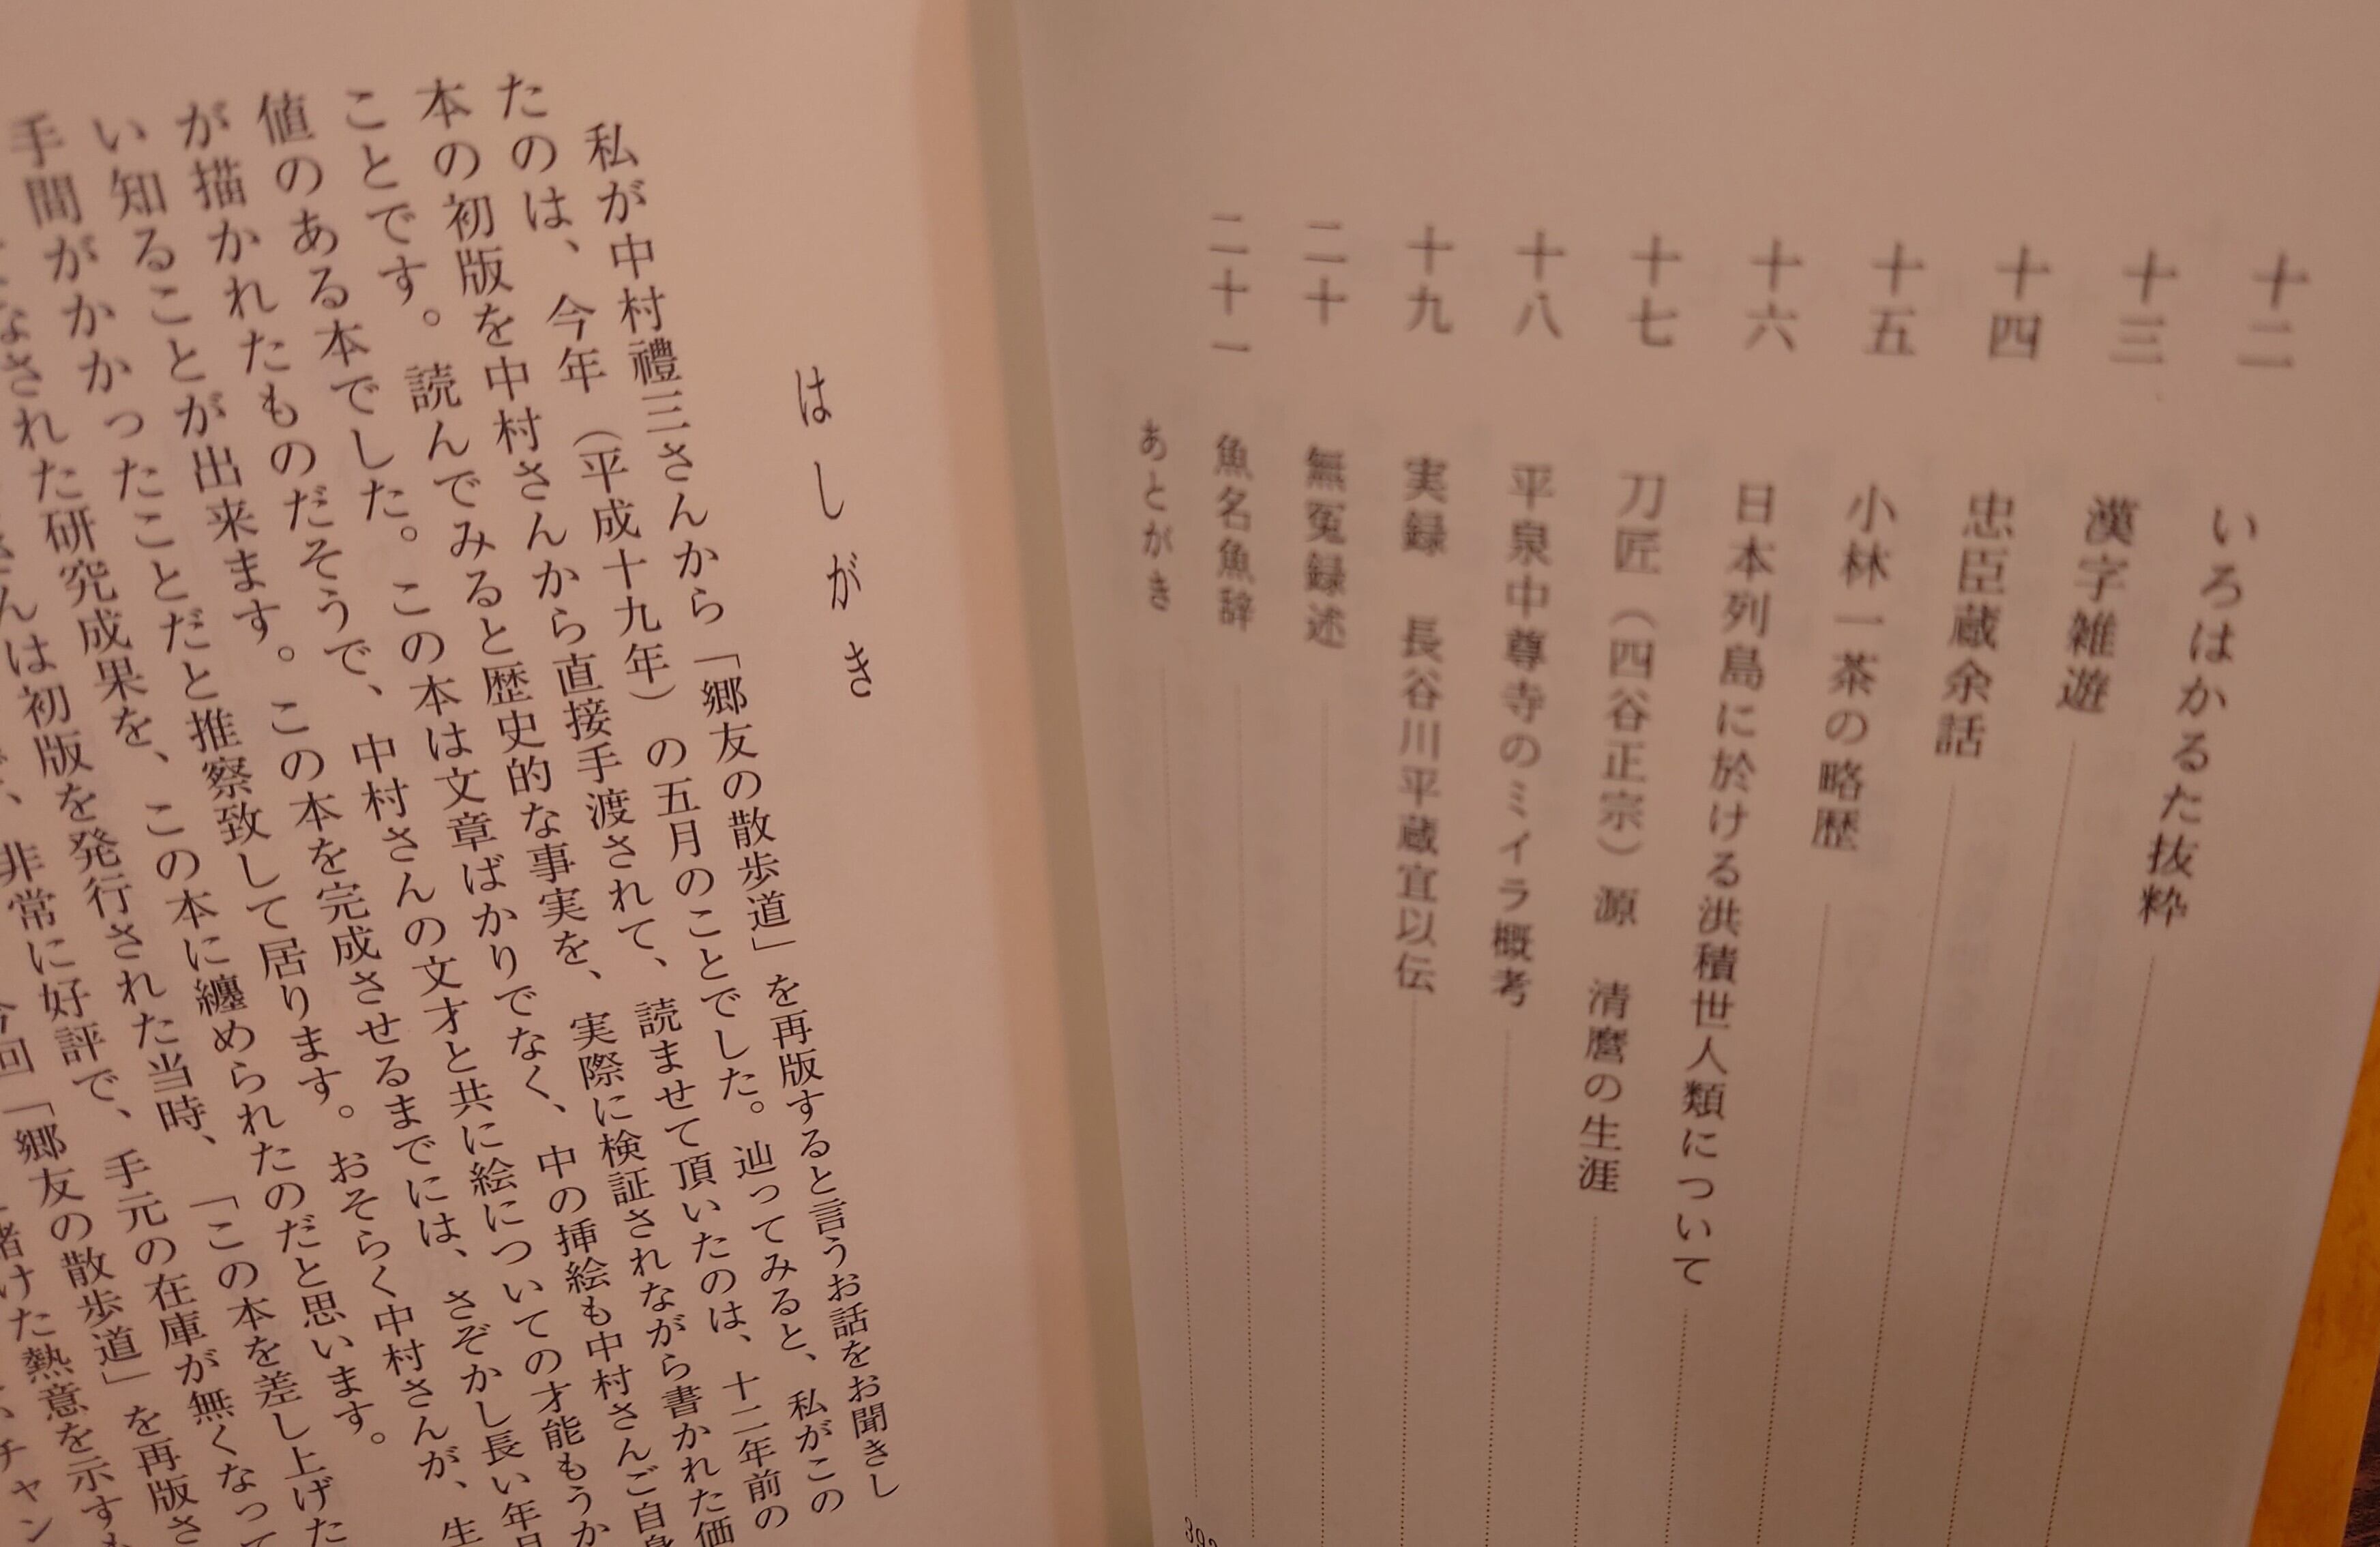 十二 いろはかるた抜粋
十三 漢字雑遊
十四 忠臣蔵余話
十五 小林一茶の略歴
十六 日本列島に於ける洪積世人類について
十七 刀匠（四谷正宗）源 清麿の生涯
十八 平泉中尊寺のミイラ概考
十九 実録 長谷川平蔵宣以伝
二十 無冤録述
二十一 魚名魚辞
あとがき
はしがき
私が中村禮三さんから「郷友の散歩道」を再版すると言うお話をお聞きし
たのは、今年（平成十九年）の五月のことでした。辿ってみると、私がこの
本の初版を中村さんから直接手渡されて、読ませて頂いたのは、十二年前の
ことです。読んでみると歴史的な事実を、実際に検証されながら書かれた価
値のある本でした。この本は文章ばかりでなく、中の挿絵も中村さんご自身
が描かれたものだそうで、中村さんの文才と共に絵についての才能もうか
い知ることが出来ます。この本を完成させるまでには、さぞかし長い年月
手間がかかったことだと推察致して居ります。おそらく中村さんが、生
なされた研究成果を、この本に纏められたのだと思います。
さんは初版を発行された当時、「この本を差し上げた
非常に好評で、手元の在庫が無くなって
今回「郷友の散歩道」を再版さ
けた熱意を示すも
チャン